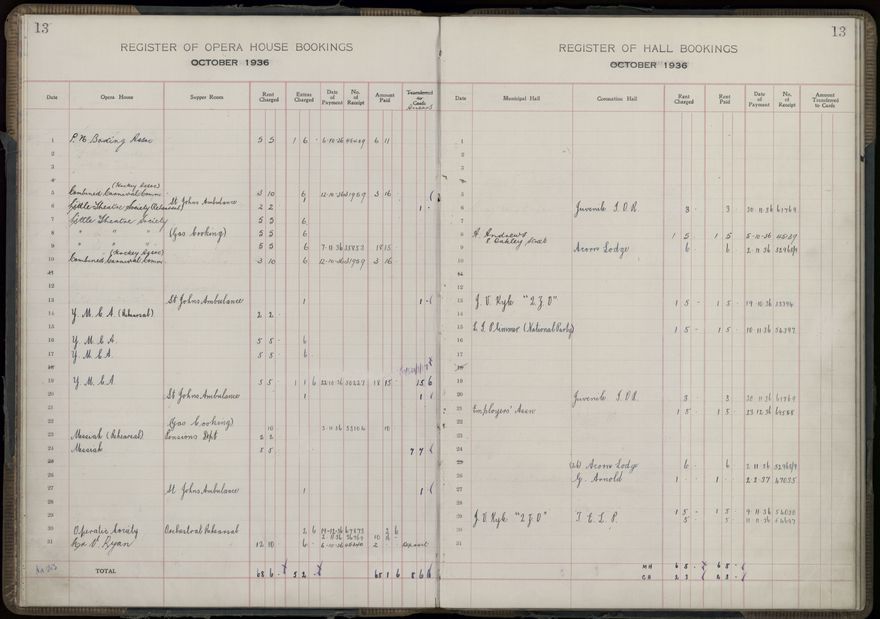 13
REGISTER OF OPERA HOUSE BOOKINGS
OCTOBER 1936
Date Opera House Supper Room Rent Charged Extras Charged Date of Payment No. of Receipt Amount Paid Transferred to Cards
1 P. N. Boxing Assn 5 5 1 6 6-10-36 6 11
2
3
(Hockey Assoc)
5 Combined Carnival Comm. 3 10 6 12-10-36 3 16
6 Little Theatre Society (Rehearsal) St Johns Ambulance 2 2 1 1
7 Little Theatre Society 5 5 6
8 " " " (Gas Cooking) 5 5 6
9 " " " 5 5 6 7-11-36 18 15
(Hockey Assoc)
10 Combined Carnival Comm. 3 10 6 12-10-36 3 16
11
12
13 St Johns Ambulance 1 1
14 Y. M. C. A. (Rehearsal) 2 2
15
16 Y. M. C. A. 5 5 6
17 Y. M. C. A. 5 5 6
18
19 Y. M. C. A. 5 5 1 1 6 22-10-36 18 15 15 6
20 St Johns Ambulance 1 1
21
22 (Gas Cooking) 10 10
23 Messiah (Rehearsal) Pensions Dept 2 2
24 Messiah 5 5 7 7
25
26
27 St Johns Ambulance 1 1
28
29
30 Operatic Society Orchestral Rehearsal 2 6 2 6
31 V. Ryan 12 10 6 6-10-36 2 Deposit
TOTAL 68 6 5 2 65 1 6 8 6 6
13
REGISTER OF HALL BOOKINGS
OCTOBER 1936
Date Municipal Hall Coronation Hall Rent Charged Rent Paid Date of Payment No. of Receipt Amount Transferred to Cards
1
2
3
4
5
6 Juvenile I.O.R. 3 3 30 11 36 61769
7
8 A. Andrews 1 5 1 5 5-10-36
8 Oakley Street
9 Acorn Lodge 6 6 2 11 36
10
12
13 J. V. Kyle "2 Z O" 1 5 1 5 19 10 36
14
15 L. G. Plimmer (National Party) 1 5 1 5 10 11 36 56397
16
17
18
19
20 Juvenile I.O.R. 3 3 30 11 36 61769
21 Employers' Assn 1 5 1 5 23 12 36
22
23
24
25 (26) Acorn Lodge 6 6 2 11 36
26 G. Arnold 1 1 2 2 37 47035
27
28
29 J. V. Kyle "2 Z O" 1 5 1 5 9 11 36
30 5 5 11 11 36
31
M H 6 5 6 5
C H 2 3 2 3